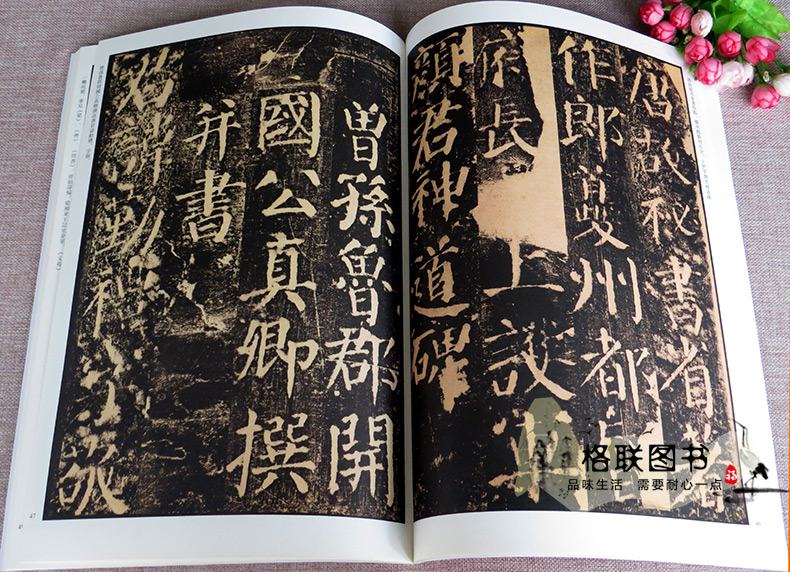 唐故秘書省著
作郎夔州都督
府長上護軍
顏君神道碑
曾孫魯郡開
國公真卿撰
并書
君諱勤礼字敬
47
格联图书
品味生活 需要耐心一点